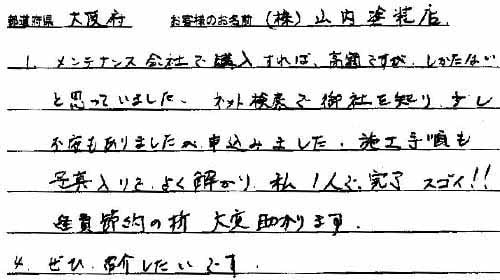 都道府県 大阪府 お客様のお名前 (株) 山内塗装店.
1. メンテナンス会社で購入すれば、高額ですが、しかたない
と思っていました。 ネット検索で御社を知り、少し
不安もありましたが、申込みました。施工手順も
写真入りで、よく解かり、私1人で、完了 スゴイ!!
経費節約の折 大変助かります.
4. ぜひ、紹介したいです.